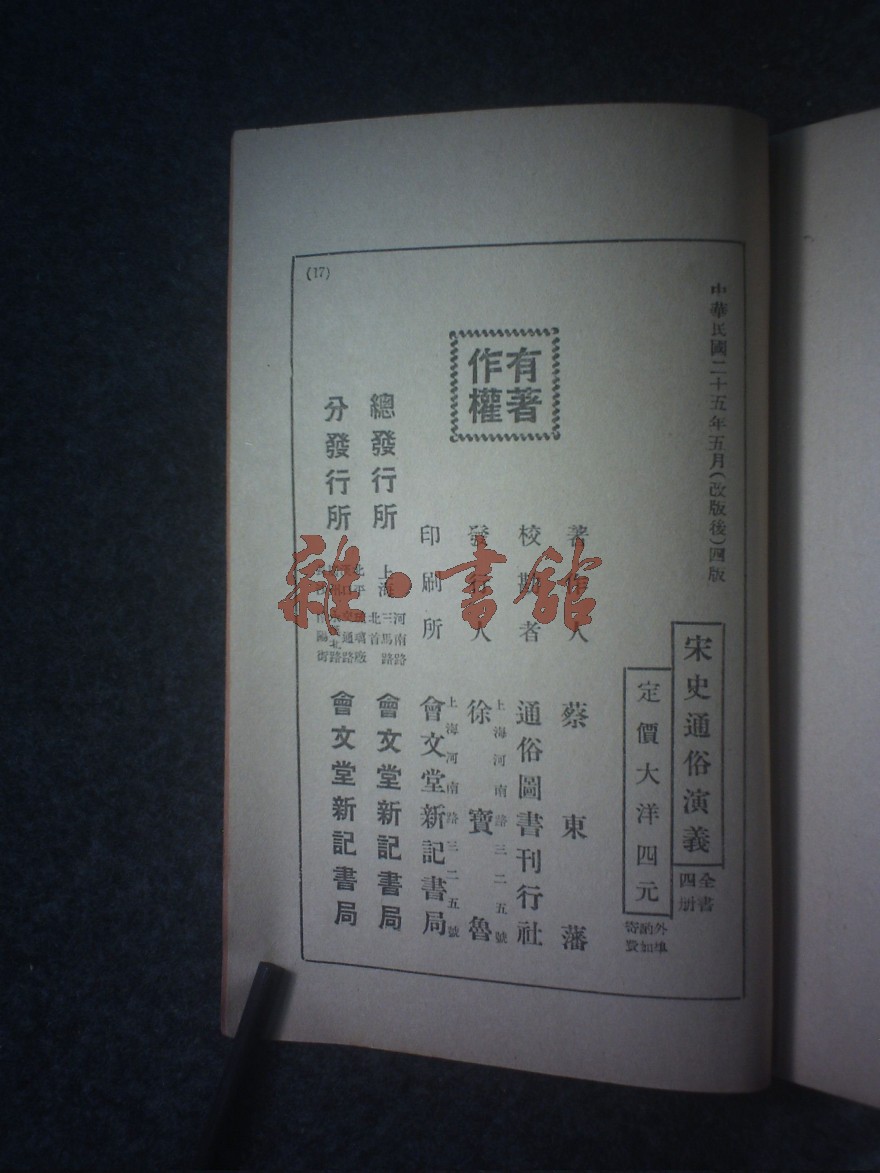 中華民國二十五年五月(改版後)四版
宋史通俗演義
全書
四册
定價大洋四元
外埠
酌加
寄費
著作人　蔡東藩
校勘者　通俗圖書刊行社
上海河南路三二五號
發行人　徐寶魯
上海河南路三二五號
印刷所　會文堂新記書局
有著
作權
總發行所
上海
河南路
三馬路
北首
會文堂新記書局
分發行所
北平
琉璃廠
會文堂新記書局
(17)
雜·書館